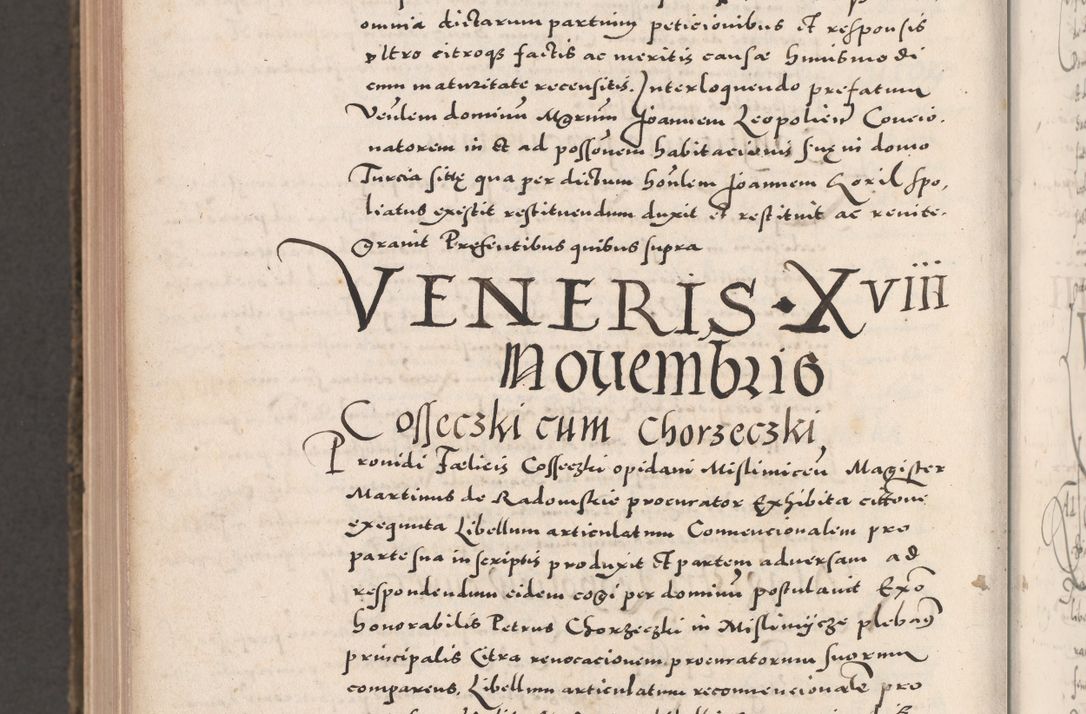 omnia dictarum partium peticionibus et responsis
vltro citroqȝ factis ac meritis causæ huiusmodi
cum maturitate recensitis. Interloquendo prefatum
Venlem dominum Mgrum Joannem Leopolien Concio-
natorem in et ad possonem habitacionis suę in domo
Turcia sittę qua per dictum honlem Joannem Koril spo-
liatus existit restituendum duxit et restituit ac reinte-
grauit Presentibus quibus supra
VENERIS · XVIII
Nouembris
Cosseczki cum Chorzeczki
Prouidi Fœlicis Cosseczki opidani Mislimiceñ Magister
Martinus de Radomskie procurator Exhibita cittone
exequuta Libellum articulatum Conuencionalem pro
parte sua in scriptis produxit et partem adversam ad
respondendum eidem cogi per dominum postulauit Exo
honorabilis Petrus Chorzeczki in Mislimicze pleban9
principalis Citra reuocacionem procuratorum suorum
comparens. Libellum articulatum reconuencionale pro